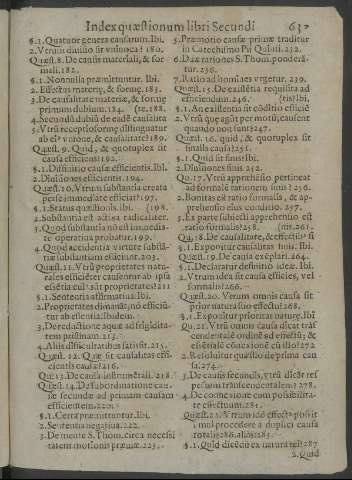 Index quæstionum libri Secundi 637
§.1. Quatuor genera causarum. Ibi.
2. Vtrum divisio sit vnivoca? 180.
Quæst.8. De causis materiali, & formali. 182.
§.1. Nonnulla præmittuntur. Ibi.
2. Effectus materiæ, & formæ. 183.
3. De causalitate materiæ, & formæ
primum dubium. 184. (te. 188.
4. Secundũ dubiũ de eadẽ causalita
5. Vtrũ receptio formæ distinguatur
ab eius vnione, & causalitate? 189.
Quæst.9. Quid, & quotuplex sit
causa efficiens? 192.
§.1. Diffinitio causæ efficientis. Ibi.
2. Divisiones efficientis. 194.
Quæst.10. Vtrum substantia creata
per se immediate efficiat? 197.
§.1. Status quæstionis. Ibi. (198.
2. Substantia est activa radicaliter.
3. Quod substantia nõ est immedia-
te operativa probatur. 199.
4. Quod accidentia virtute substã-
tiæ substantiam efficiant. 203.
Quæst.11. Vtrũ proprietates natu-
rales efficiẽter causentur ab ipsa
essẽtia cuius sũt proprietates? 211
§.1. Sententia affirmativa. Ibi.
2. Proprietates dimanãt, nõ efficiũ-
tur ab essentia. Ibidem.
3. De reductione aquæ ad frigidita-
tem pristinam. 213.
4. Aliis difficultatibus satisfit. 215.
Quæst.12. Quæ sit causalitas effi-
cientis causæ? 216.
Quæ.13. De causa instrumẽtali. 218
Quæst.14. De subordinatione cau-
sæ secundæ ad primam causam
efficientem. 220.
§.1. Certa præmittuntur. Ibi.
2. Sententia negativa. 222.
3. De mente S. Thom. circa necessi
tatem motionis præviæ. 223.
5. Præmotio causæ primæ traditur
in Catechismo Pii Quinti. 232.
6. Duæ rationes S. Thom. ponderã-
tur. 236.
7. Ratio ad homines vrgetur. 239.
Quæst.15. De existẽtia requisita ad
efficiendum. 246. (tis? Ibi.
§.1. An existentia sit cõditio efficiẽ
2. Vtrũ quæ agũt per motũ, causent
quando non sunt? 247.
Quæst.16. quid, & quotuplex sit
finalis causa? 251.
§.1. Quid sit finis? Ibi.
2. Divisiones finis 252.
Qu.17. Vtrũ apprehẽsio pertineat
ad formalẽ rationem finis? 256.
2. Bonitas est ratio formalis, & ap-
prehensio eius conditio. 257.
3. Ex parte subiecti apprehensio est
ratio formalis? 258. (tis. 261.
Qu.18. De causalitate, & effectib. fi
§.1. Exponitur causalitas finis. Ibi.
Quæst.19. De causa exẽplari. 264.
§.1. Declaratur definitio ideæ. Ibi.
2. Vtrum idea sit causa efficiẽs, vel
formalis? 266.
Quæst.20. Vtrum omnis causa sit
prior natura suo effectu? 268.
§.1. Exponitur prioritas naturæ. Ibi
Qu.21. Vtrũ omnis causa dicat trãs
cendentalẽ ordinẽ ad effectũ; & è
2. Resolvitur quæstio de prima cau
sa. 274.
3. De causis secundis, vtrũ dicãt res
pectum trãnscendentalem? 278.
4. De connexione cum possibilita-
te effectuum. 281.
mul procedere a duplici causa
totali? 286. alias 285.
2. Quid